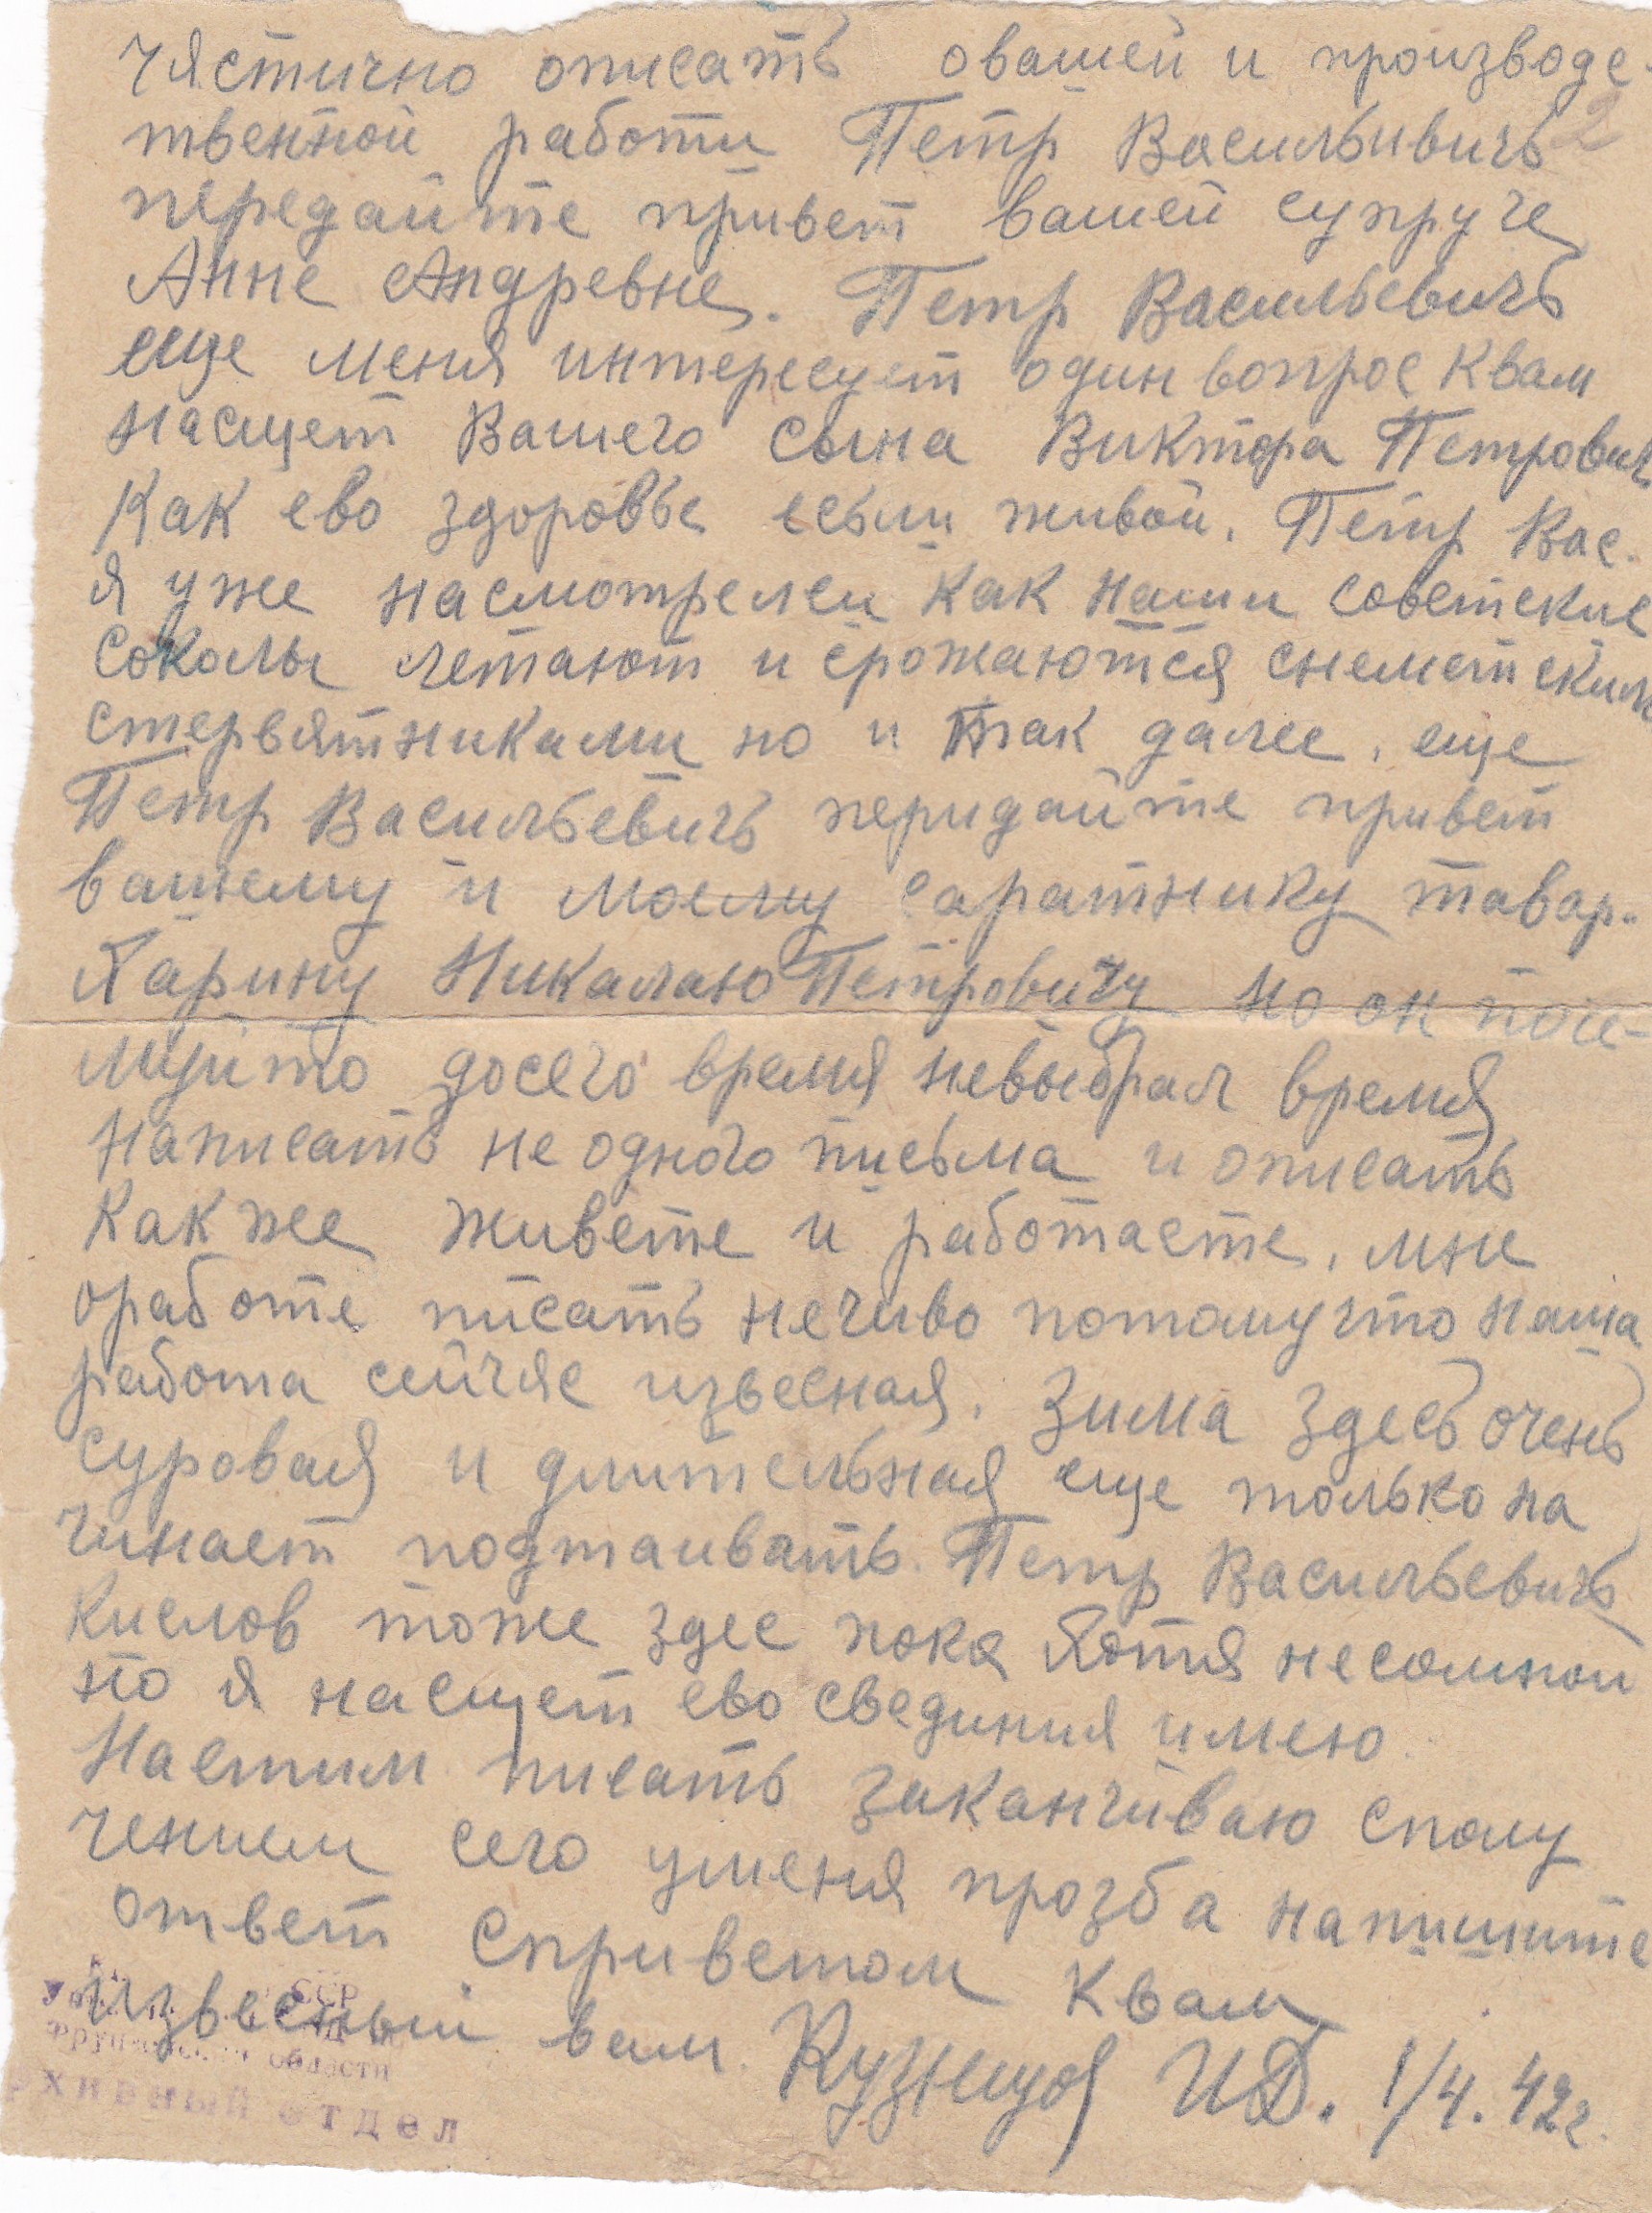 чястично описать овашей и производс-
твенной работи Петр Васильивичь 2
передайте привет вашей супруге
Анне Андревне. Петр Васильевичь
еще меня интересует один вопрос Квам
насщет Вашего сына Виктора Петрович
Как ево здоровье есьли живой. Петр Вас.
я уже насмотрелси Как наши советские
соколы летают и срожаются снеметским
стервятниками но и так далее. еще
Петр Васильевичь перидайте привет
вашему и моему саратнику тавар.
Ларину Никалаю Петровичу но он поче-
муйто досего время невыбрал время
написать не одного письма и описать
Как же живете и работаете. мне
оработе писать нечиво потомучто наша
работа сейчяс извесная. Зима здесь очень
суровая и длительная еще только на
чинает подтаивать. Петр Васильевичь
Кислов тоже здес пока Хотя несомной
но я насщет ево свединия имею.
Наетим писать заканчиваю сполу
чением сего уменя прозба напишите
ответ Сприветом Квам
Извесный вам. Кузнецов ИД. 1/4. 42г.
ССР
области
архивный отдел